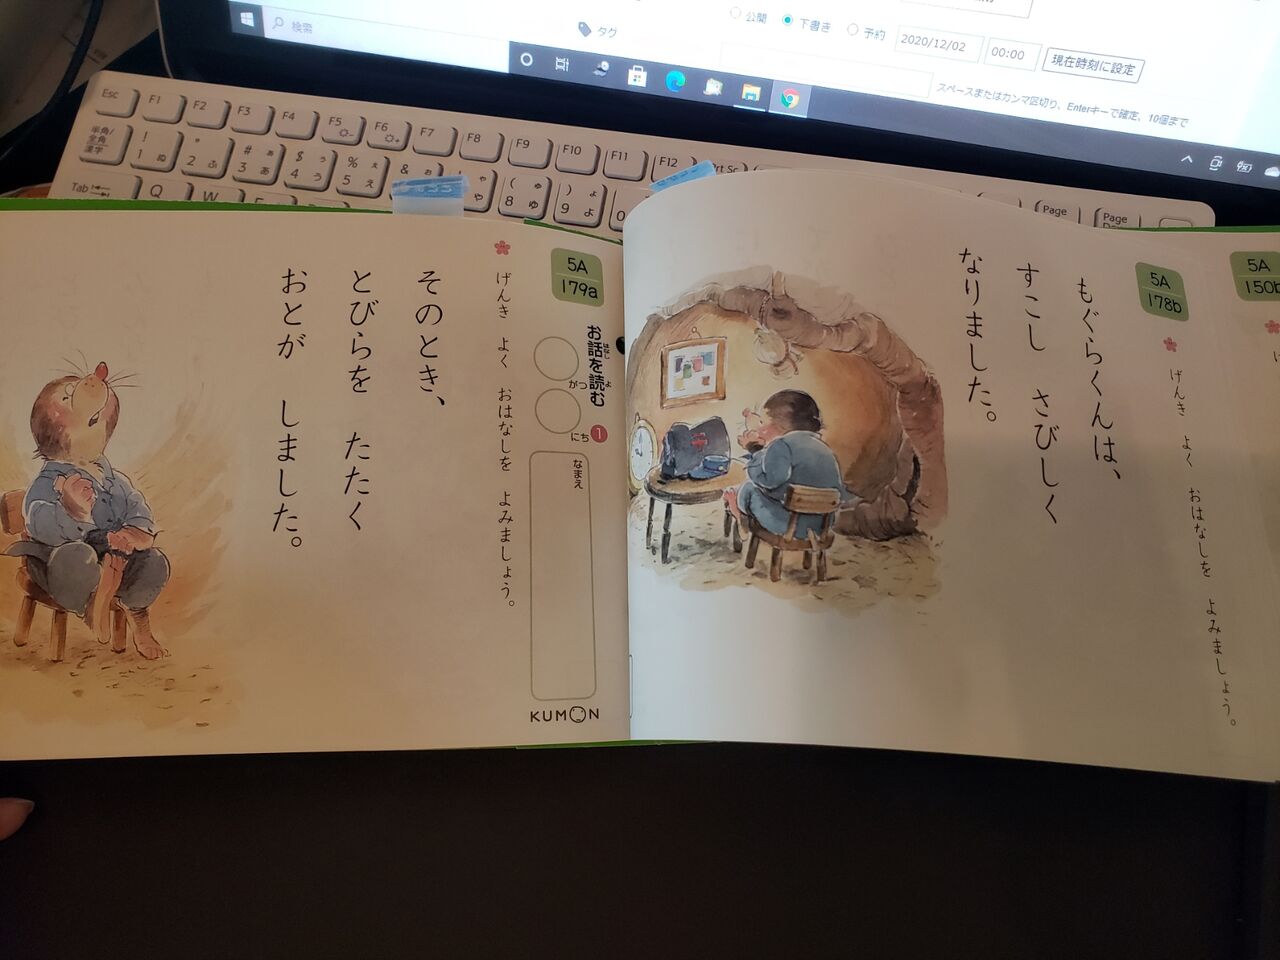 検索
タグ
公開
下書き
予約
2020/12/02
00:00
現在時刻に設定
スペースまたはカンマ区切り、Enterキーで確定、10個まで
Esc
F1
F2
F3
F4
F5
F6
F7
F8
F9
F10
F11
F12
半角/
全角
漢字
! 1 ぬ
" 2 ふ
# ぁ 3 あ
$ ぅ 4 う
% ぇ 5 え
& ぉ
ゃ
( ゅ 8 ゆ
) ょ 9 よ
0
Tab
Q
W
Page
Page
5A
150b
5A
178b
げんき よく おはなしを よみましょう。
もぐらくんは、
すこし さびしく
なりました。
5A
179a
お話を読む 1
はなし
よ
がつ
にち
なまえ
KUMON
げんき よく おはなしを よみましょう。
そのとき、
とびらを たたく
おとが しました。